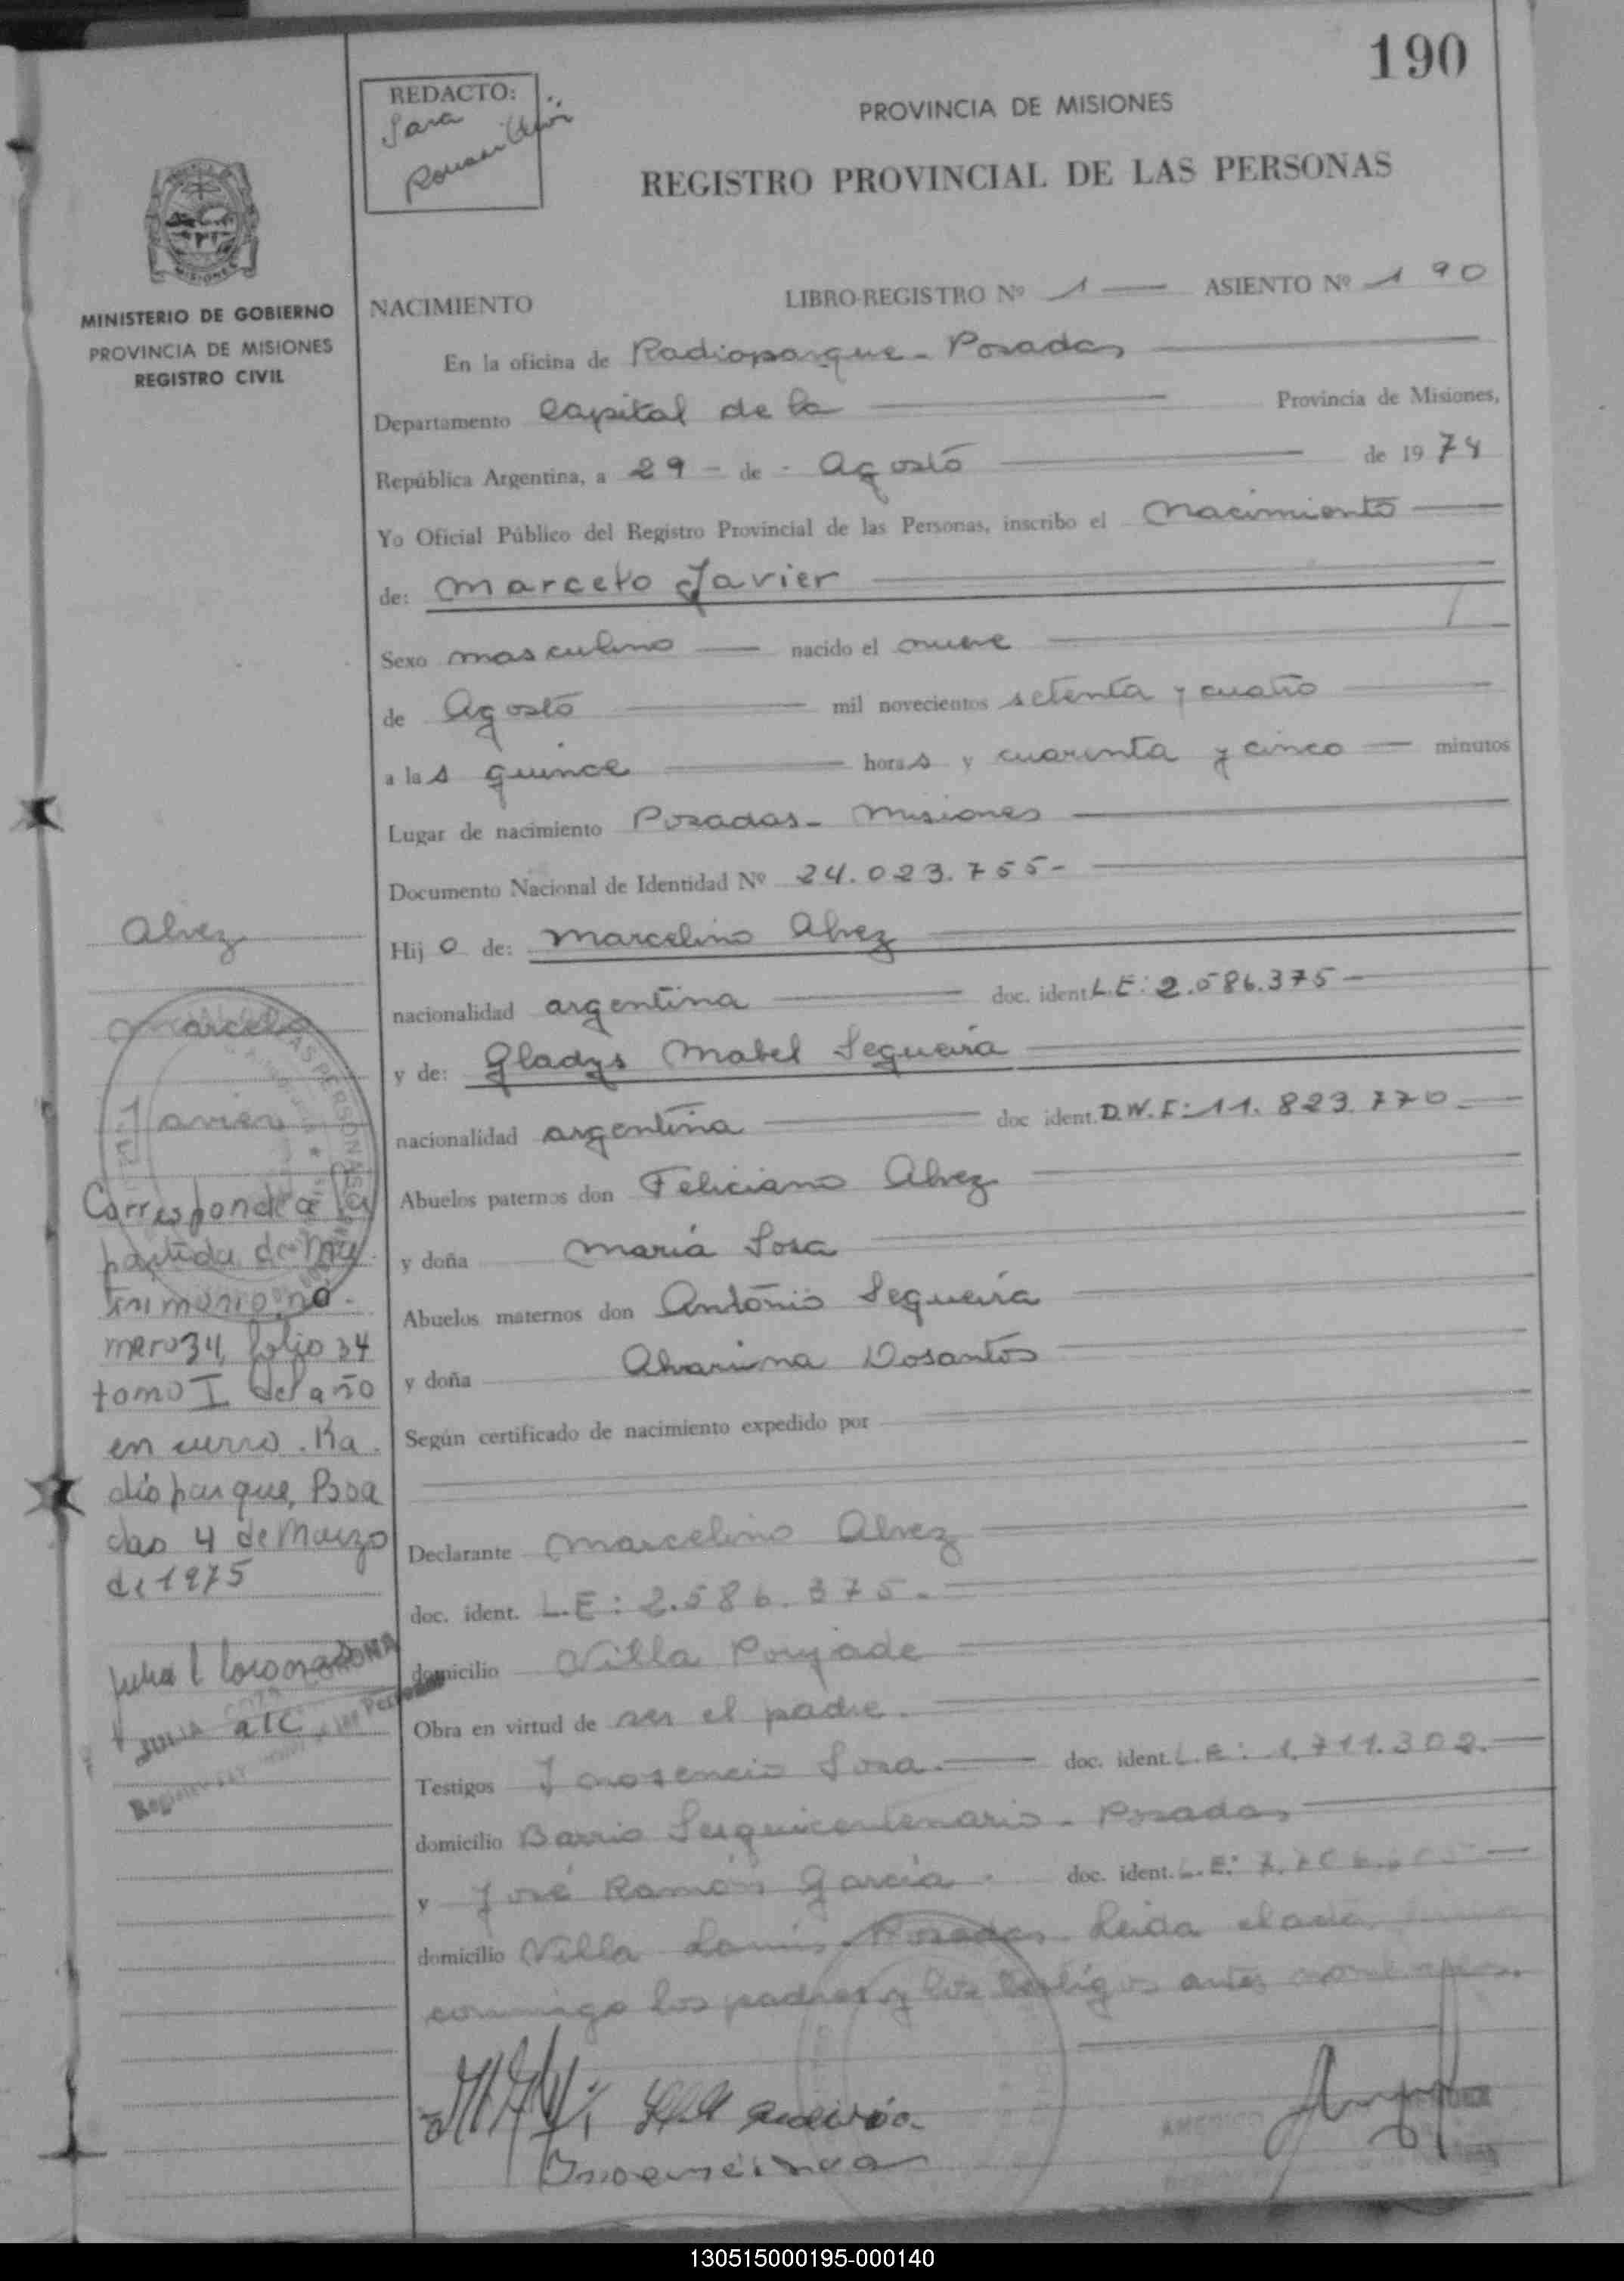 190
REDACTO:
Sara
PROVINCIA DE MISIONES
REGISTRO PROVINCIAL DE LAS PERSONAS
MISIONES
MINISTERIO DE GOBIERNO
PROVINCIA DE MISIONES
REGISTRO CIVIL
NACIMIENTO LIBRO-REGISTRO Nº 1 ASIENTO Nº 190
En la oficina de Radioparque - Posadas
Departamento Capital de la Provincia de Misiones,
República Argentina, a 29 - de - Agosto de 1974
Yo Oficial Público del Registro Provincial de las Personas, inscribo el Nacimiento
de: Marcelo Javier
Sexo masculino nacido el nueve
de Agosto mil novecientos setenta y cuatro
a las quince horas y cuarenta y cinco minutos
Lugar de nacimiento Posadas - Misiones
Documento Nacional de Identidad Nº 24.023.755-
Hijo de: Marcelino Alvez
nacionalidad argentina doc. ident. L.E: 2.586.375-
y de: Gladys Mabel Sequeira
nacionalidad argentina doc ident. D.N.I: 11.823.770
Abuelos paternos don Feliciano Alvez
y doña maria Sosa
Abuelos maternos don Antonio Sequeira
y doña Dosantos
Según certificado de nacimiento expedido por
Declarante Marcelino Alvez
doc. ident. L.E: 2.586.375.-
domicilio Villa Poujade
Obra en virtud de ser el padre.
Testigos Inosencio Sosa. doc. ident. L.E: 1.711.302.
domicilio Barrio Sesquicentenario - Posadas
y José Ramón Garcia doc. ident. L.E:
domicilio Villa Lanús Posadas. Leida el acta,
conmigo los padres y los testigos antes
Alvez
Marcelo
Javier
Corresponde a la
partida de Ma
trimonio nú-
mero 34, folio 34
tomo I del año
en curso. Ra
dioparque, Posa
das 4 de Marzo
de 1975
JULIA
a/c
130515000195-000140